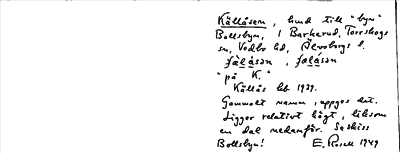 Källåsen, hund till "byn"
Bollsbyn, i Barkerud, Torrskogs
sn, Vedbo hd, Älvsborgs l.
"på K."
Källås kbl 1939.
Gammalt namn, uppges det.
Ligger relativt högt, liksom
en dal nedanför. Se skiss
Bollsbyn! E. Rosell 1949